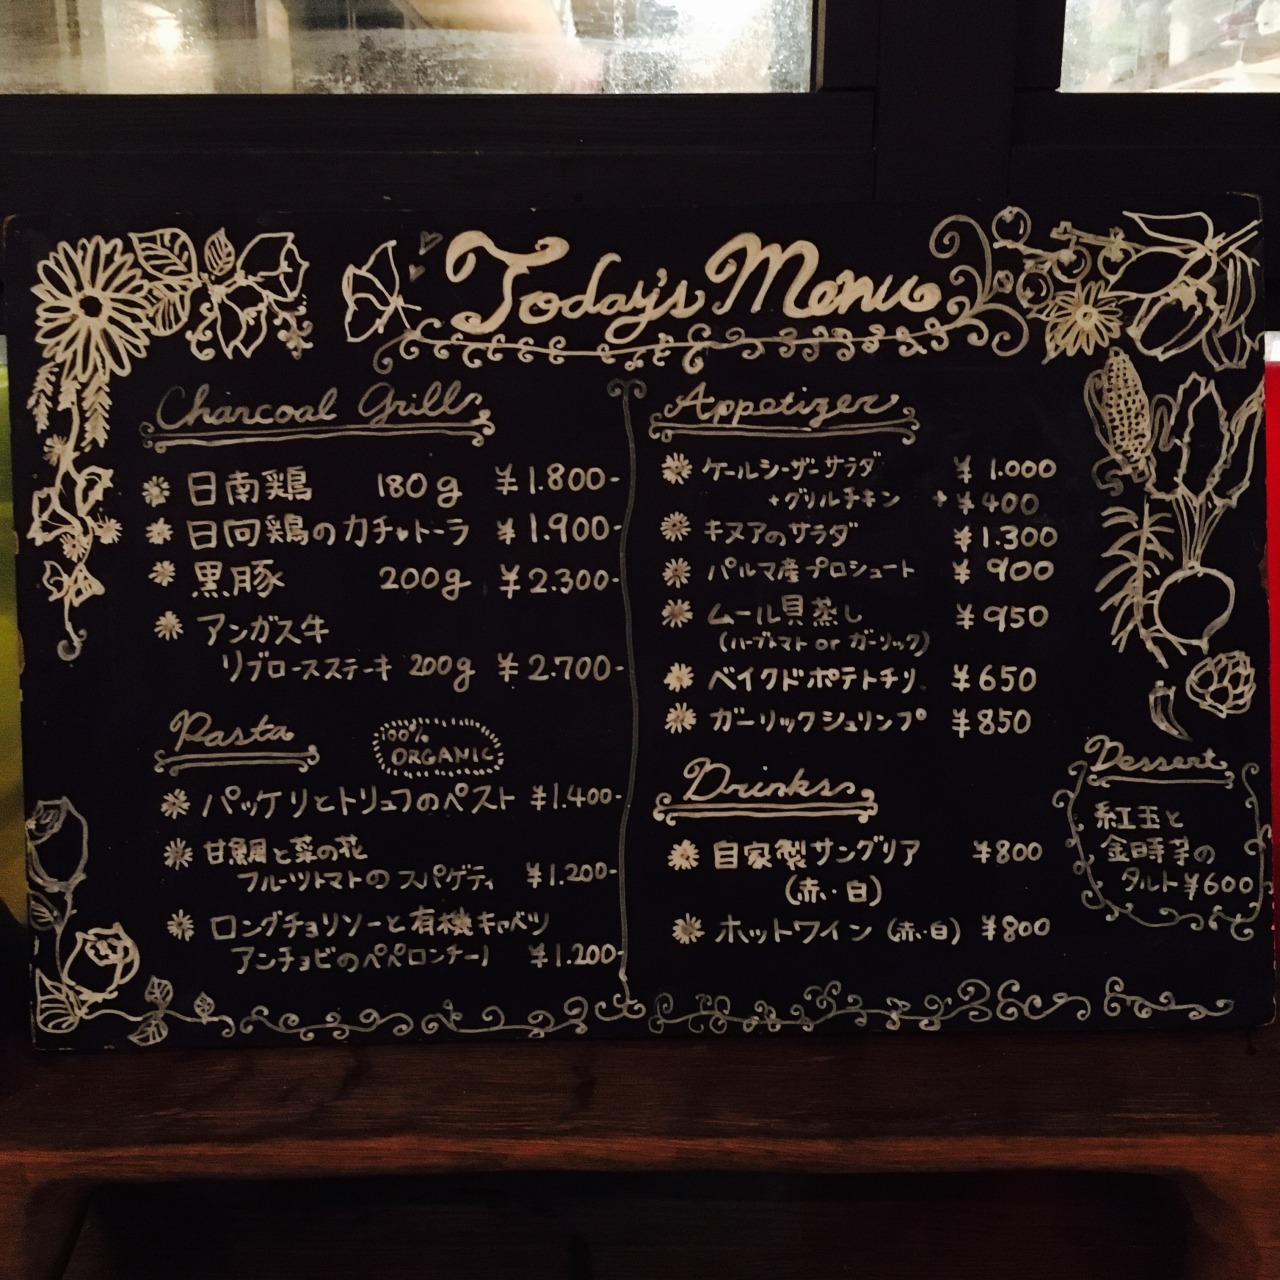 Today's Menu
Charcoal Grill
日南鶏 180g ¥1.800-
日向鶏のカチャトーラ ¥1.900-
黒豚 200g ¥2.300-
アンガス牛
リブロースステーキ 200g ¥2.700-
Pasta
100% ORGANIC
パッケリとトリュフのペースト ¥1.400-
甘鯛と菜の花
フルーツトマトのスパゲティ ¥1.200-
ロングチョリソーと有機キャベツ
アンチョビのペペロンチーノ ¥1.200-
Appetizer
ケールシーザーサラダ ¥1.000
+グリルチキン +¥400
キヌアのサラダ ¥1.300
パルマ産プロシュート ¥900
ムール貝蒸し ¥950
(ハーブトマト or ガーリック)
ベイクドポテトチリ ¥650
ガーリックシュリンプ ¥850
Drinks
自家製サングリア ¥800
(赤・白)
ホットワイン (赤・白) ¥800
Dessert
紅玉と
金時芋の
タルト ¥600